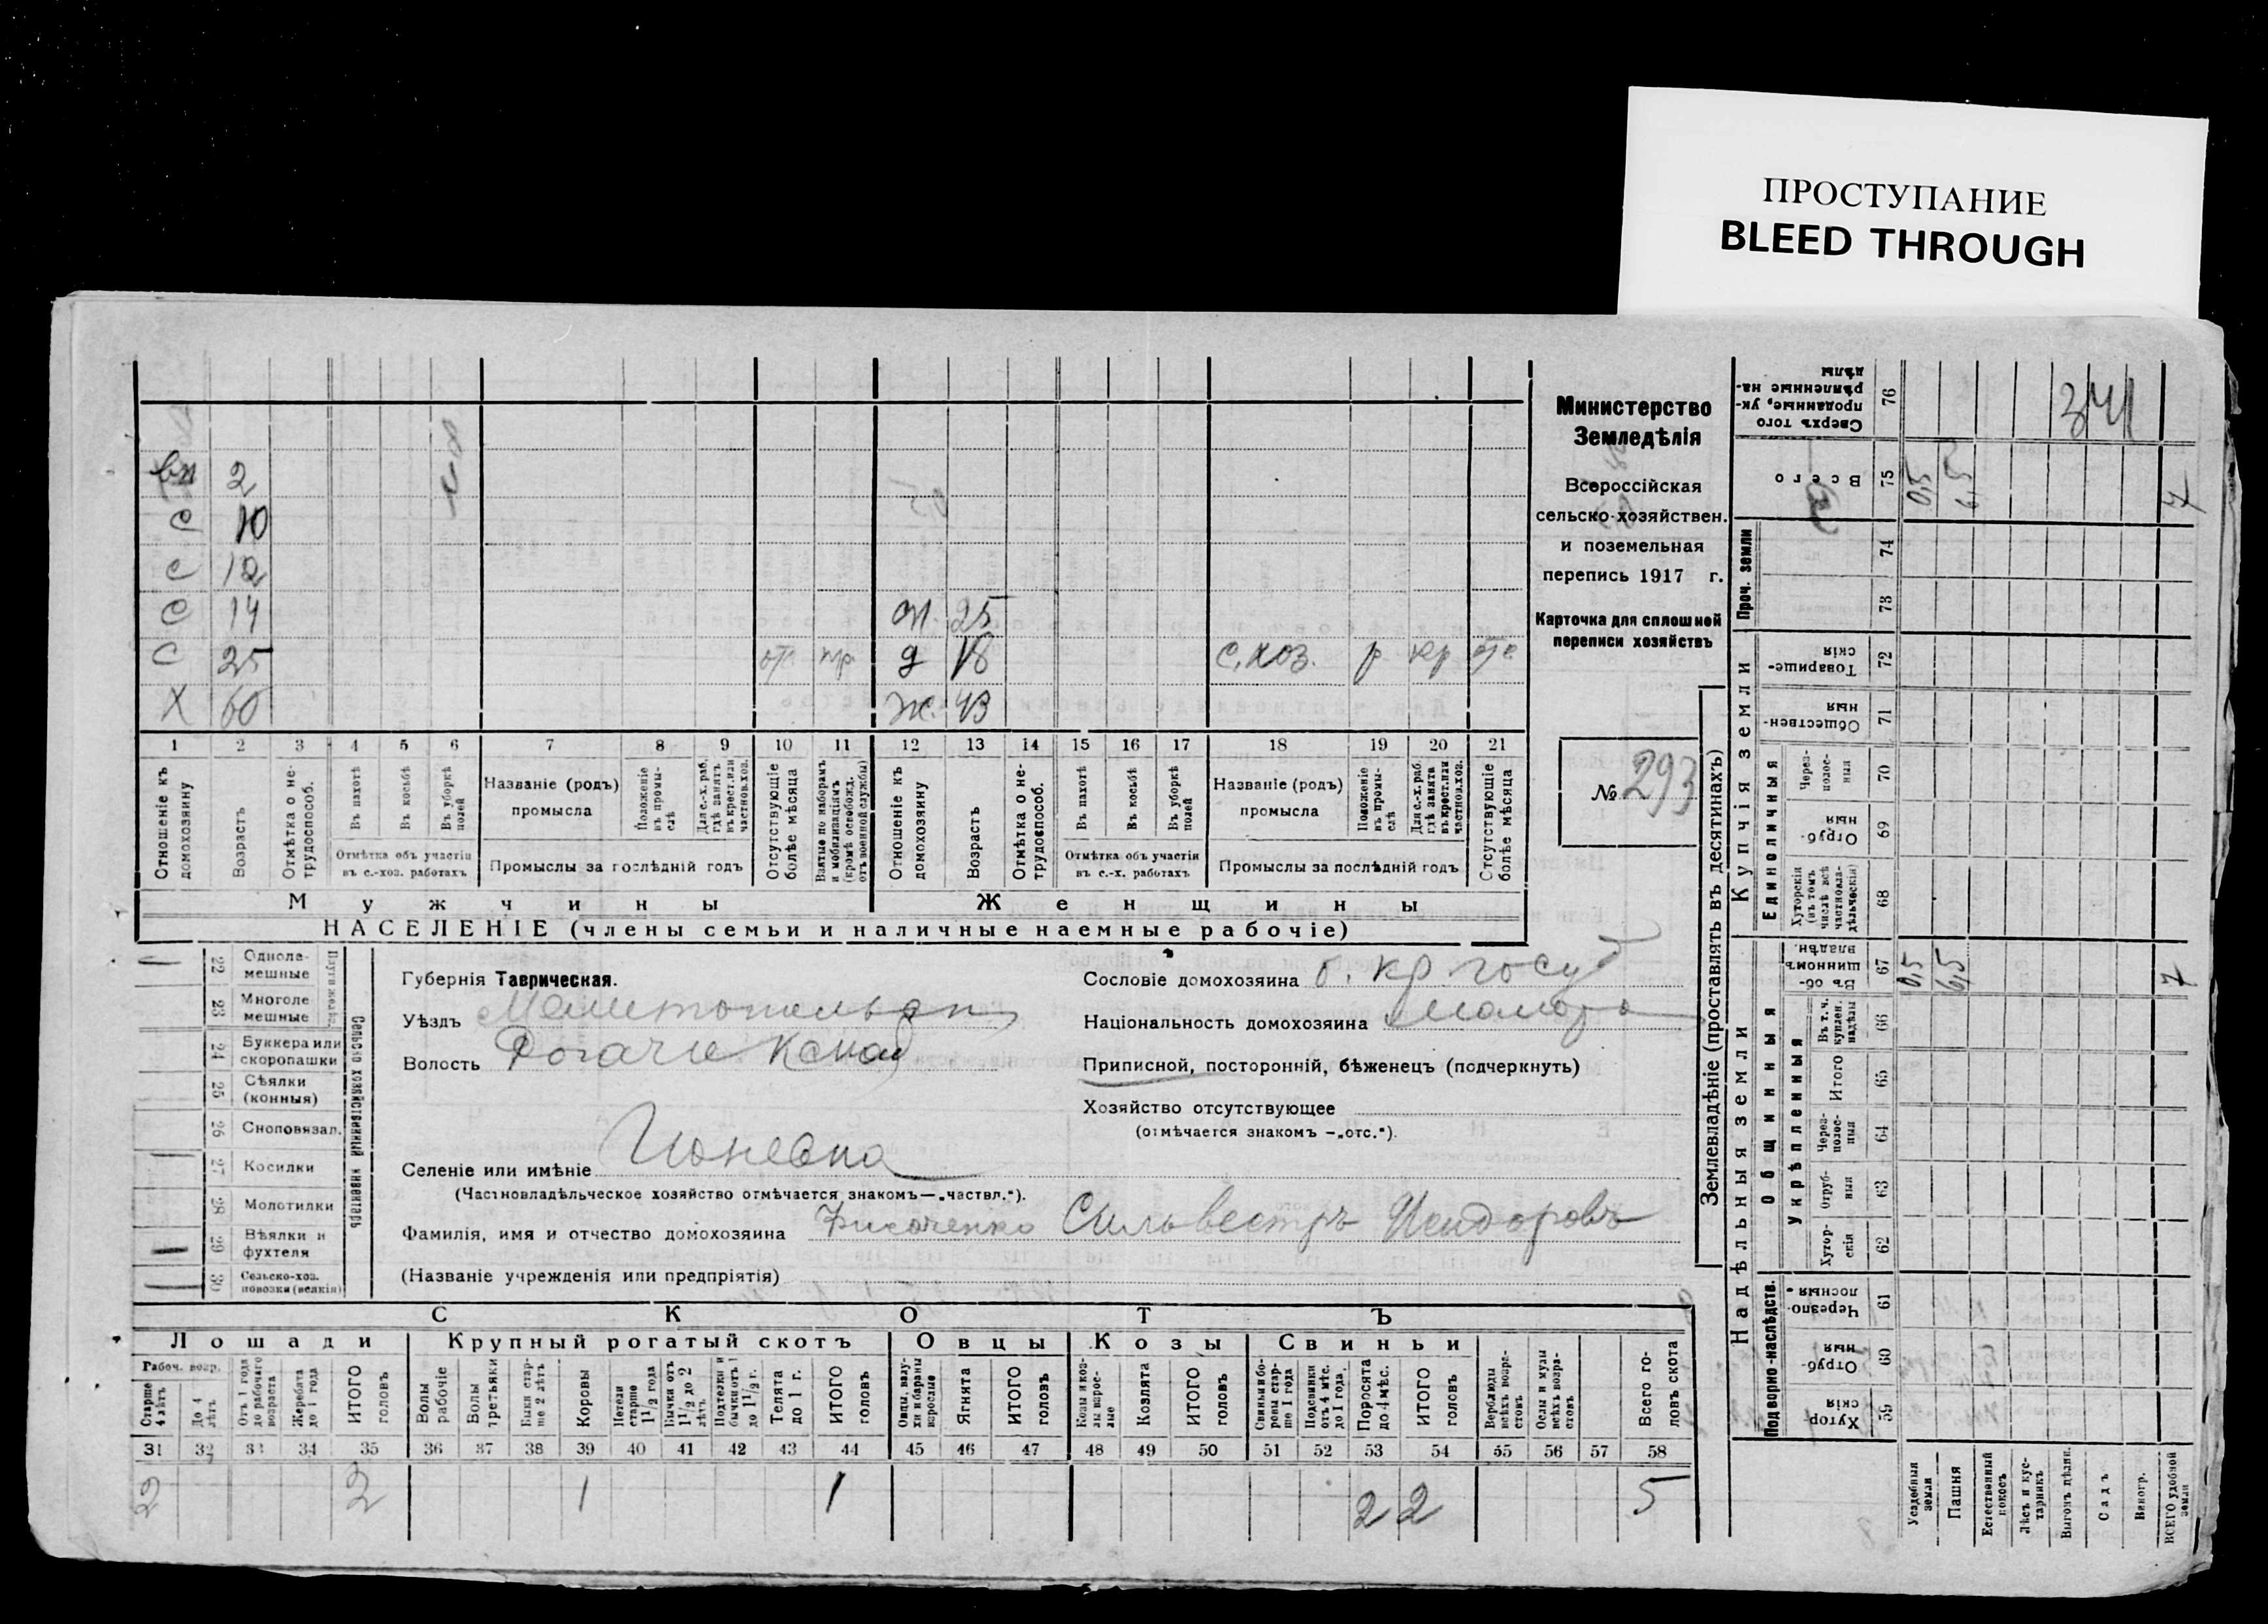 ПРОСТУПАНИЕ
BLEED THROUGH
вн 2
С 10
С 12
С 14 ж 25
С 25 от. д 18 с.хоз. р кр
Х 60 ж. 43
1 2 3 4 5 6 7 8 9 10 11 12 13 14 15 16 17 18 19 20 21
Отношеніе къ домохозяину
Возрастъ
Отмѣтка о нетрудоспособ.
Въ пахотѣ
Въ косьбѣ
Въ уборкѣ полей
Отмѣтка объ участіи въ с.-хоз. работахъ
Названіе (родъ) промысла
Положеніе въ промыслѣ
Для с.-х. раб. гдѣ занятъ въ крест. или частнов. хоз.
Промыслы за послѣдній годъ
Отсутствующіе болѣе мѣсяца
Взятые по наборамъ и мобилизаціямъ (кромѣ освобожд. отъ военной службы)
Отношеніе къ домохозяину
Возрастъ
Отмѣтка о нетрудоспособ.
Въ пахотѣ
Въ косьбѣ
Въ уборкѣ полей
Отмѣтка объ участіи въ с.-х. работахъ
Названіе (родъ) промысла
Положеніе въ промыслѣ
Для с.-х. раб. гдѣ занята въ крест. или частнов. хоз.
Промыслы за послѣдній годъ
Отсутствующіе болѣе мѣсяца
Мужчины Женщины
НАСЕЛЕНІЕ (члены семьи и наличные наемные рабочіе)
Министерство
Земледѣлія
Всероссійская
сельско-хозяйствен.
и поземельная
перепись 1917 г.
Карточка для сплошной
переписи хозяйствъ
№ 293
22 Однолемешные
23 Многолемешные
24 Буккера или скоропашки
25 Сѣялки (конныя)
26 Сноповязал.
27 Косилки
28 Молотилки
29 Вѣялки и фухтеля
30 Сельско-хоз. повозки (всякія)
Сельско хозяйственный инвентарь
Губернія Таврическая.
Уѣздъ Мелитопольск
Волость Рогачи
Селеніе или имѣніе
(Частновладѣльческое хозяйство отмѣчается знакомъ—„частвл.“).
Фамилія, имя и отчество домохозяина Сильвестръ Исидоровъ
(Названіе учрежденія или предпріятія)
Сословіе домохозяина б. кр. госуд
Національность домохозяина малор
Приписной, посторонній, бѣженецъ (подчеркнуть)
Хозяйство отсутствующее
(отмѣчается знакомъ —„отс.“).
СКОТЪ
Лошади Крупный рогатый скотъ Овцы Козы Свиньи
Рабоч. возр.
Старше 4 лѣтъ
До 4 лѣтъ
Отъ 1 года до рабочаго возраста
Жеребята до 1 года
ИТОГО головъ
Волы рабочіе
Волы третьяки
Быки старше 2 лѣтъ
Коровы
Нетели старше 1 1/2 года
Бычки отъ 1 1/2 до 2 лѣтъ
Подтелки и бычки отъ 1 до 1 1/2 г.
Телята до 1 г.
ИТОГО головъ
Овцы, валухи и бараны взрослые
Ягнята
ИТОГО головъ
Козы и козлы взрослые
Козлята
ИТОГО головъ
Свиньи и боровы старше 1 года
Подсвинки отъ 4 мѣс. до 1 года
Поросята до 4 мѣс.
ИТОГО головъ
Верблюды всѣхъ возрастовъ
Ослы и мулы всѣхъ возрастовъ
Всего головъ скота
31 32 33 34 35 36 37 38 39 40 41 42 43 44 45 46 47 48 49 50 51 52 53 54 55 56 57 58
2 2 1 1 2 2 5
Землевладѣніе (проставлять въ десятинахъ)
Надѣльныя земли Купчія земли
Подворно-наслѣдств.
Общинныя
Укрѣпленныя
Единоличныя
Проч. земли
Сверхъ того проданные, укрѣпленные надѣлы 76 341
Всего 75 0,5 6,5 7
74
73
Товарищескія 72
Общественныя 71
Черезполосныя 70
Отрубныя 69
Хуторскія (въ томъ числѣ всѣ частновладѣльческія) 68
Въ общинномъ владѣн. 67 0,5 6,5 7
Въ т. ч. куплен. надѣлы 66
Итого 65
Черезполосныя 64
Отрубныя 63
Хуторскія 62
Черезполосныя 61
Отрубныя 60
Хуторскія 59
Усадебныя земли
Пашня
Естественный покосъ
Лѣсъ и кустарникъ
Выгонъ дѣлин.
Садъ
Виногр.
ВСЕГО удобной земли